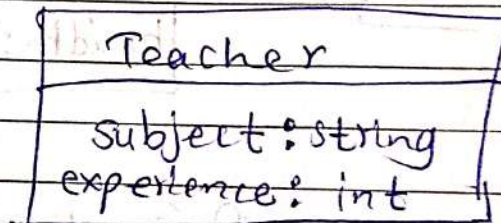 Teacher
subject: string
experience: int